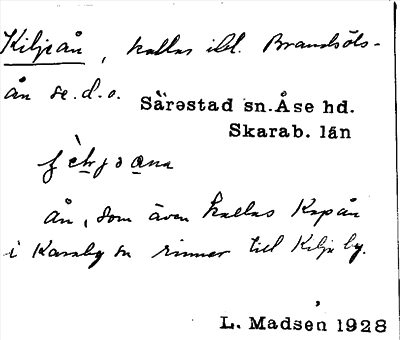 Kiljeån, kallas ibl. Brandsöls-
ån se.d.o.
Särestad sn. Åse hd.
Skarab. län
ån, som även kallas Kapån
i Karaby sn rinner till Kilja by.
L. Madsén 1928